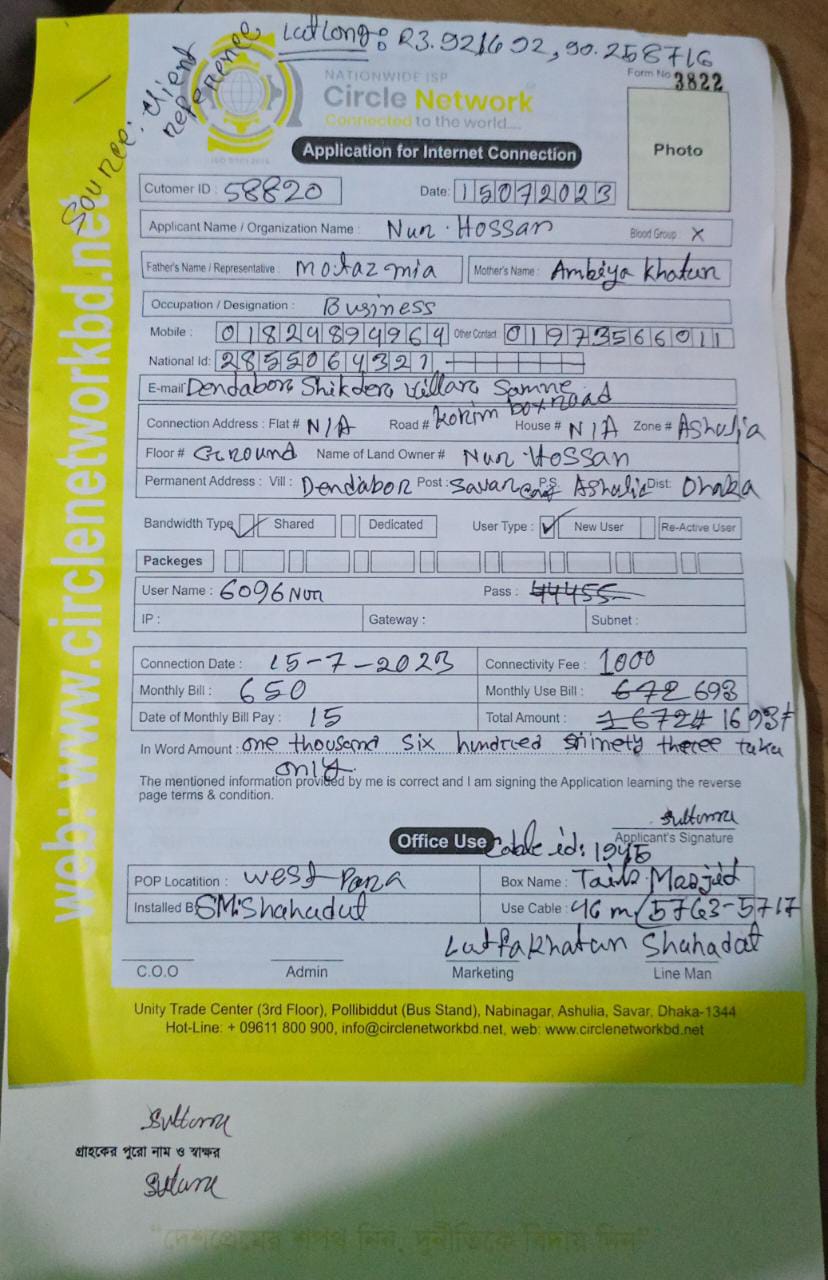 LatLong: 23.921692, 90.258716
Source: Client reference
NATIONWIDE ISP
Circle Network
Connected to the world....
Form No 3822
Application for Internet Connection
Photo
Cutomer ID : 58820 Date: 15072023
Applicant Name / Organization Name : Nur Hossan Blood Group : X
Father's Name / Representative : Motaz mia Mother's Name : Ambiya Khatun
Occupation / Designation : Business
Mobile : 01824894964 Other Contact 01973566011
National Id: 2855064321
E-mail Dendabor, Shikder Villar Samne
Connection Address : Flat # N/A Road # Korim box road House # N/A Zone # Ashulia
Floor # Ground Name of Land Owner# Nur Hossan
Permanent Address : Vill : Dendabor Post : Savar P.S: Ashulia Dist: Dhaka
Bandwidth Type Shared Dedicated User Type : New User Re-Active User
Packeges
User Name : 6096Nur Pass : 44455
IP : Gateway : Subnet :
Connection Date : 15-7-2023 Connectivity Fee : 1000
Monthly Bill : 650 Monthly Use Bill : 672 693
Date of Monthly Bill Pay : 15 Total Amount : 1672 1693
In Word Amount : one thousand six hundred ninety three taka
only
The mentioned information provided by me is correct and I am signing the Application learning the reverse
page terms & condition.
Sultana
Applicant's Signature
Office Use Cable id: 1945
POP Locatition : West Para Box Name : Masjid
Installed B SM. Shahadut Use Cable : 46 m/5763-5717
Lutfa khatun Shahadat
C.O.O Admin Marketing Line Man
Unity Trade Center (3rd Floor), Pollibiddut (Bus Stand), Nabinagar, Ashulia, Savar, Dhaka-1344
Hot-Line: + 09611 800 900, info@circlenetworkbd.net, web: www.circlenetworkbd.net
web: www.circlenetworkbd.net
Sultana
গ্রাহকের পুরো নাম ও স্বাক্ষর
Sultana
"দেশপ্রেমের শপথ নিন, দুর্নীতিকে বিদায় দিন"